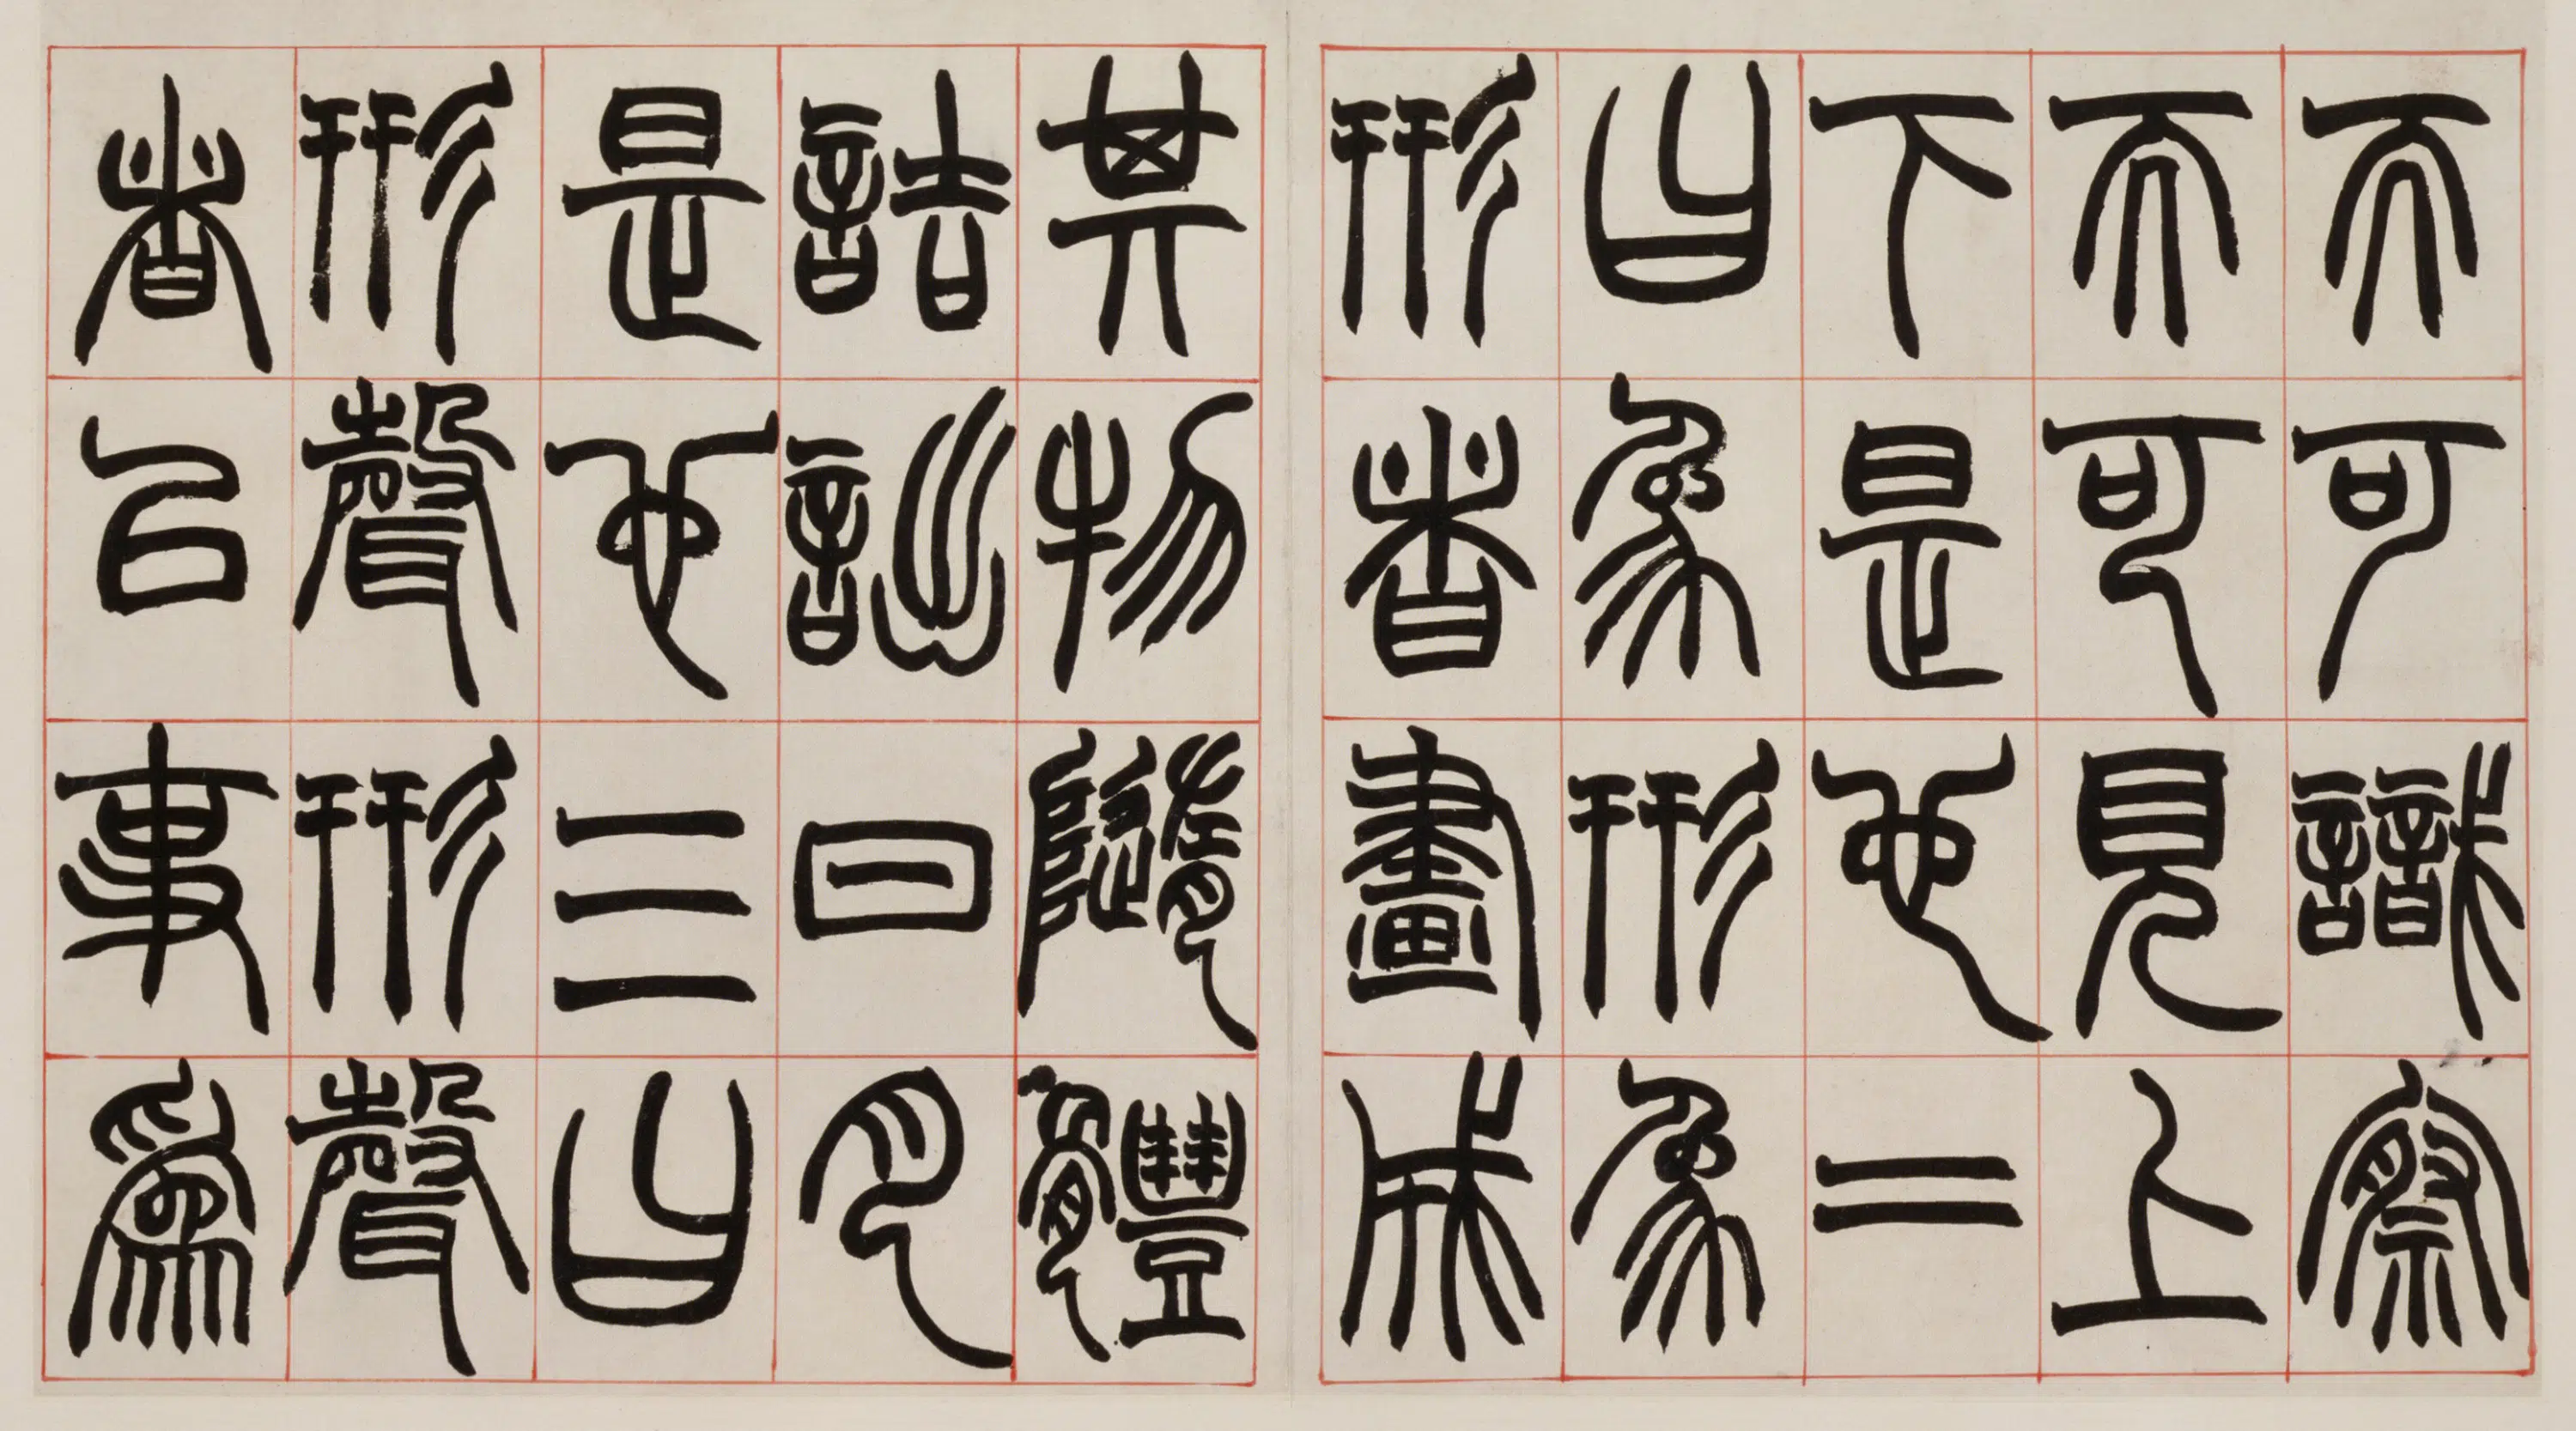 而可識察
而可見上
下是也二
曰象形象
形者畫成
其物隨體
詰詘日月
是也三曰
形聲形聲
者以事為